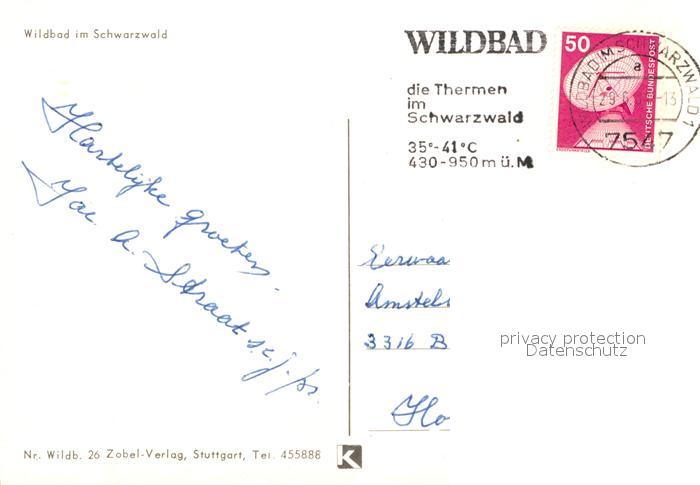 Wildbad im Schwarzwald
WILDBAD
die Thermen
im
Schwarzwald
35°-41°C
430-950m ü.M
50
DEUTSCHE BUNDESPOST
WILDBAD IM SCHWARZWALD 1
a
-13
7547
Hartelijke groeten,
Jac. A. Straat s.c.j. pr.
Eerwaa
Amstels
3316 B
Ho
privacy protection
Datenschutz
Nr. Wildb. 26 Zobel-Verlag, Stuttgart, Tel. 455888
K